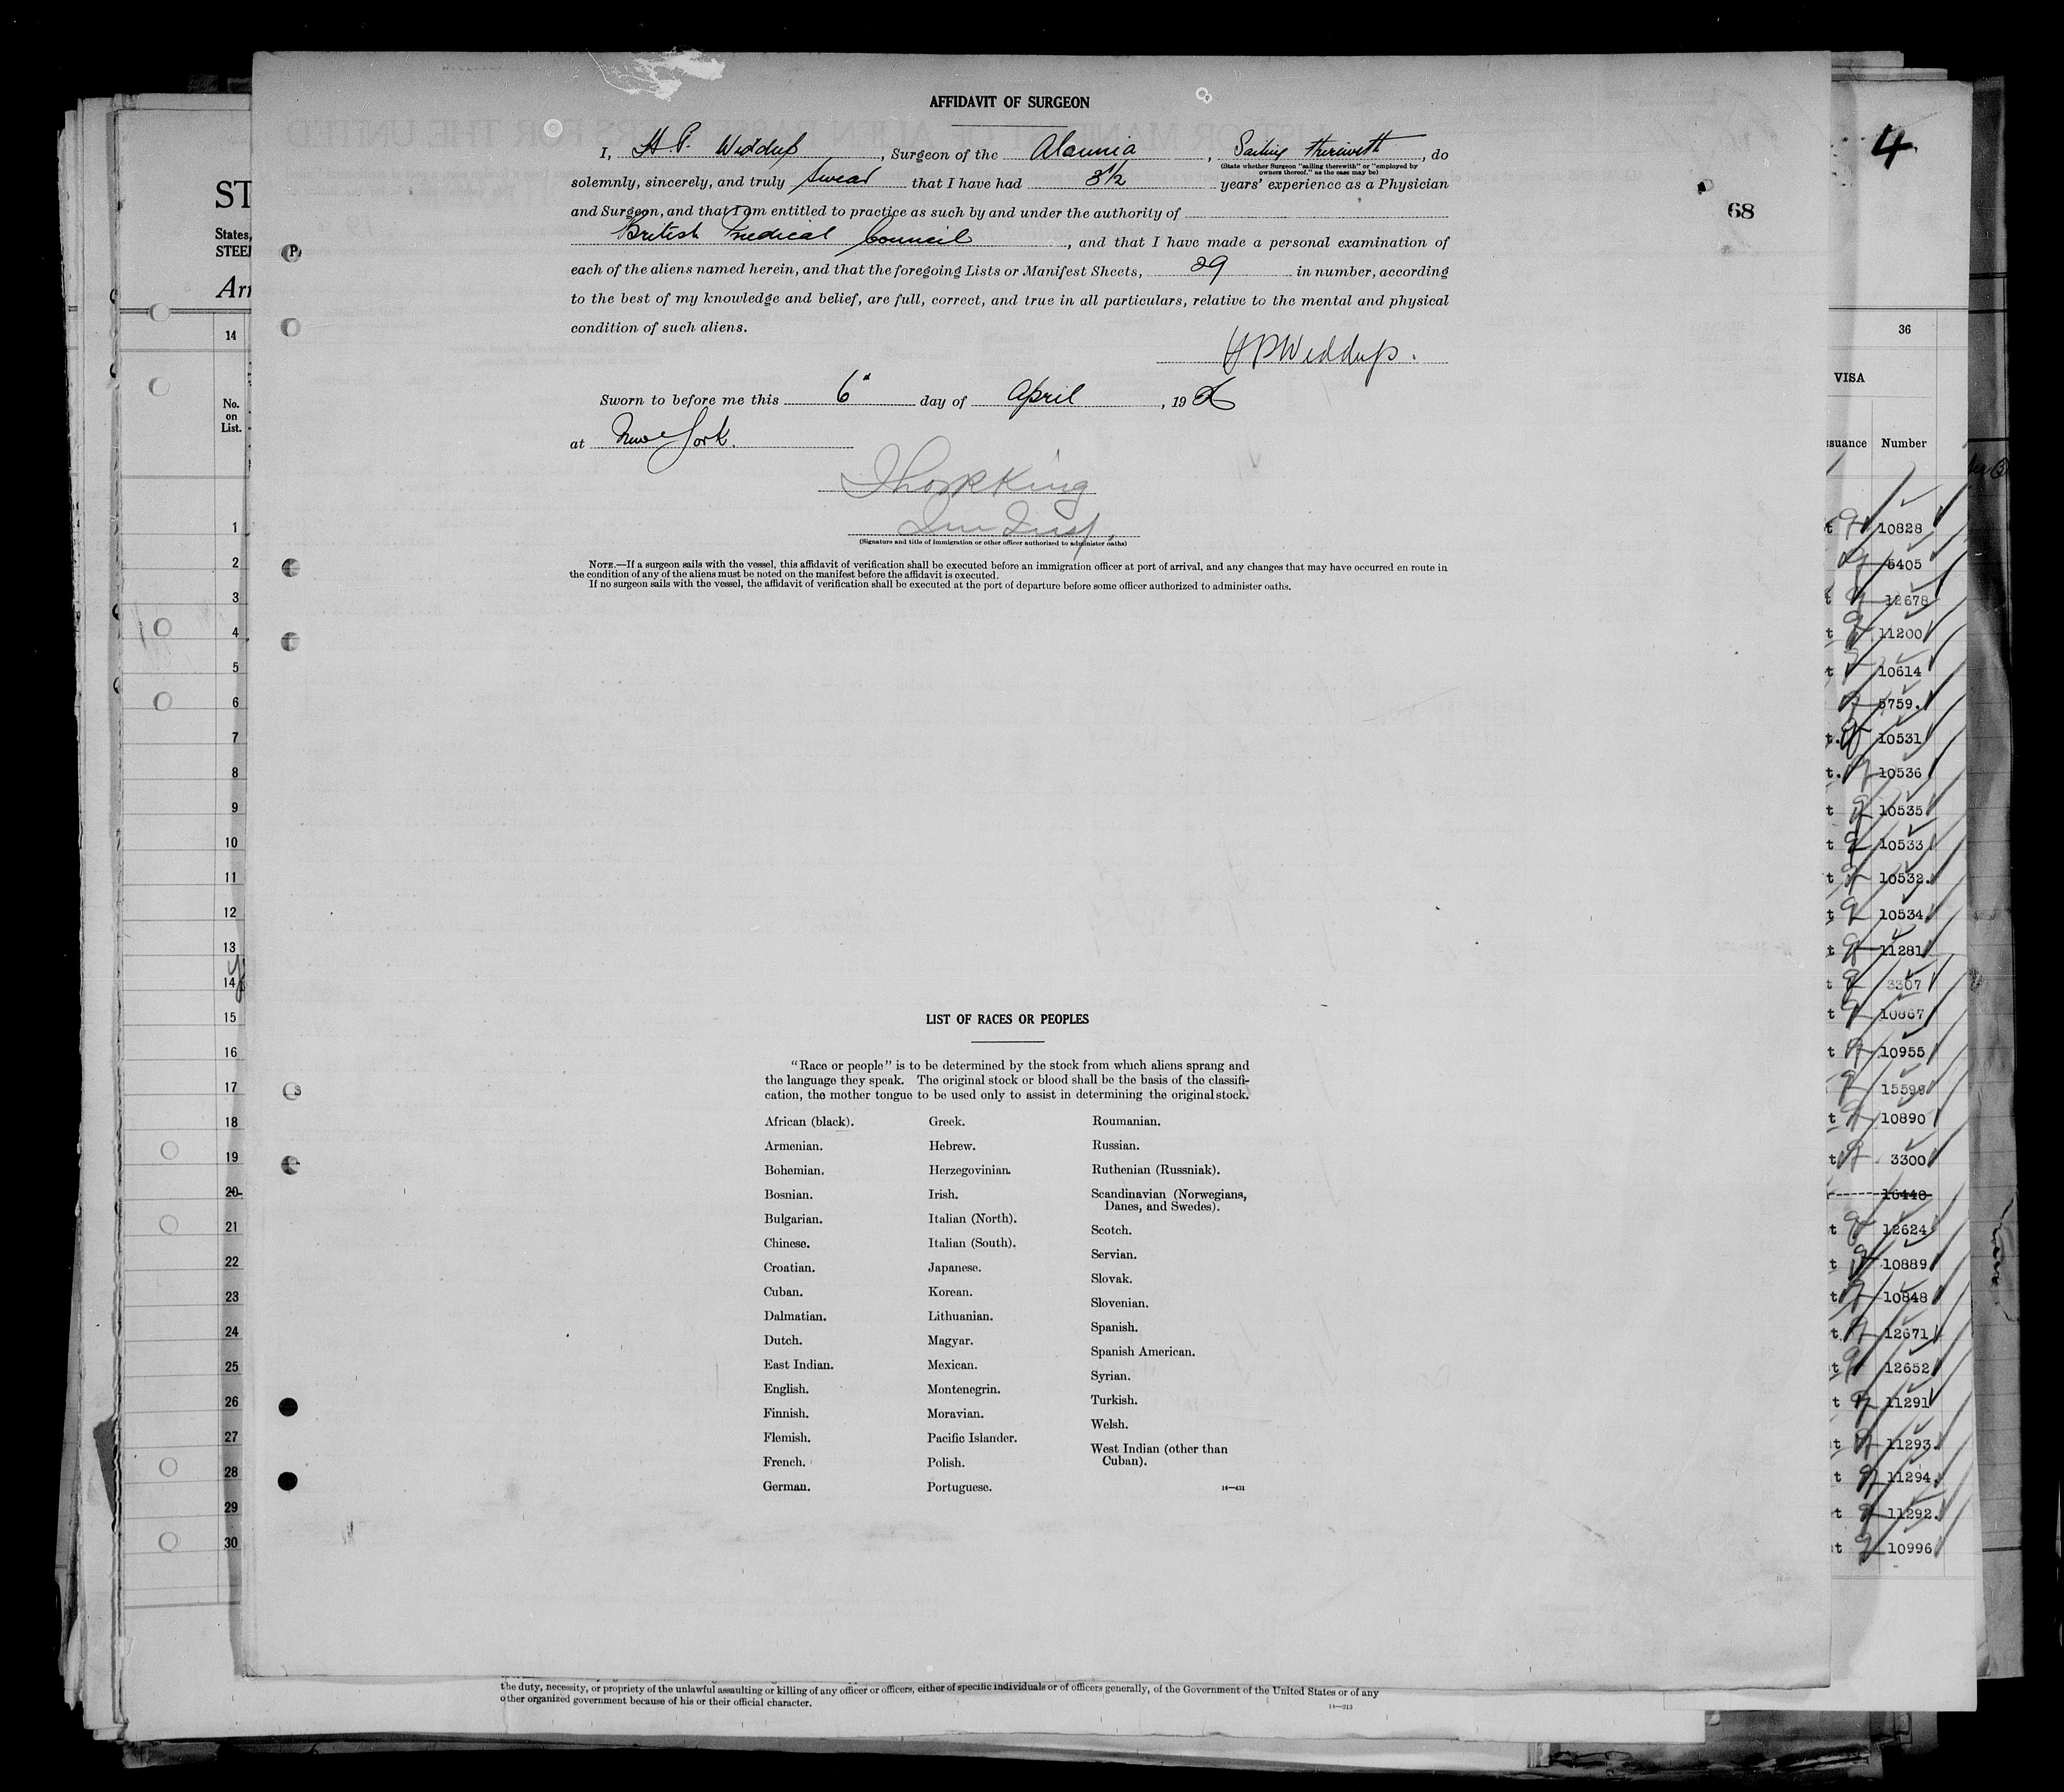 AFFIDAVIT OF SURGEON
I, H. P. Widdup, Surgeon of the Alaunia, Sailing therewith, do
(State whether Surgeon "sailing therewith" or "employed by
owners thereof," as the case may be)
solemnly, sincerely, and truly swear that I have had 3 1/2 years' experience as a Physician
and Surgeon, and that I am entitled to practice as such by and under the authority of
British Medical Council, and that I have made a personal examination of
each of the aliens named herein, and that the foregoing Lists or Manifest Sheets, 29 in number, according
to the best of my knowledge and belief, are full, correct, and true in all particulars, relative to the mental and physical
condition of such aliens.
HPWiddup.
Sworn to before me this 6" day of April, 19
at New York.
King
Imm Insp.
(Signature and title of immigration or other officer authorized to administer oaths)
NOTE.—If a surgeon sails with the vessel, this affidavit of verification shall be executed before an immigration officer at port of arrival, and any changes that may have occurred en route in
the condition of any of the aliens must be noted on the manifest before the affidavit is executed.
If no surgeon sails with the vessel, the affidavit of verification shall be executed at the port of departure before some officer authorized to administer oaths.
LIST OF RACES OR PEOPLES
"Race or people" is to be determined by the stock from which aliens sprang and
the language they speak. The original stock or blood shall be the basis of the classifi-
cation, the mother tongue to be used only to assist in determining the original stock.
African (black).
Armenian.
Bohemian.
Bosnian.
Bulgarian.
Chinese.
Croatian.
Cuban.
Dalmatian.
Dutch.
East Indian.
English.
Finnish.
Flemish.
French.
German.
Greek.
Hebrew.
Herzegovinian.
Irish.
Italian (North).
Italian (South).
Japanese.
Korean.
Lithuanian.
Magyar.
Mexican.
Montenegrin.
Moravian.
Pacific Islander.
Polish.
Portuguese.
Roumanian.
Russian.
Ruthenian (Russniak).
Scandinavian (Norwegians,
Danes, and Swedes).
Scotch.
Servian.
Slovak.
Slovenian.
Spanish.
Spanish American.
Syrian.
Turkish.
Welsh.
West Indian (other than
Cuban).
14—431
the duty, necessity, or propriety of the unlawful assaulting or killing of any officer or officers, either of specific individuals or of officers generally, of the Government of the United States or of any
other organized government because of his or their official character.
14—213
ST
States,
STEE
Arr
14
No.
on
List.
1
2
3
4
5
6
7
8
9
10
11
12
13
14
15
16
17
18
19
20
21
22
23
24
25
26
27
28
29
30
4
68
36
VISA
ssuance Number
10828
5405
12678
11200
10614
5759.
10531
10536
10535
10533
10532.
10534
11281
3307
10867
10955
15599
10890
3300
16440
12624
10889
10848
12671
12652
11291
11293.
11294.
11292.
10996